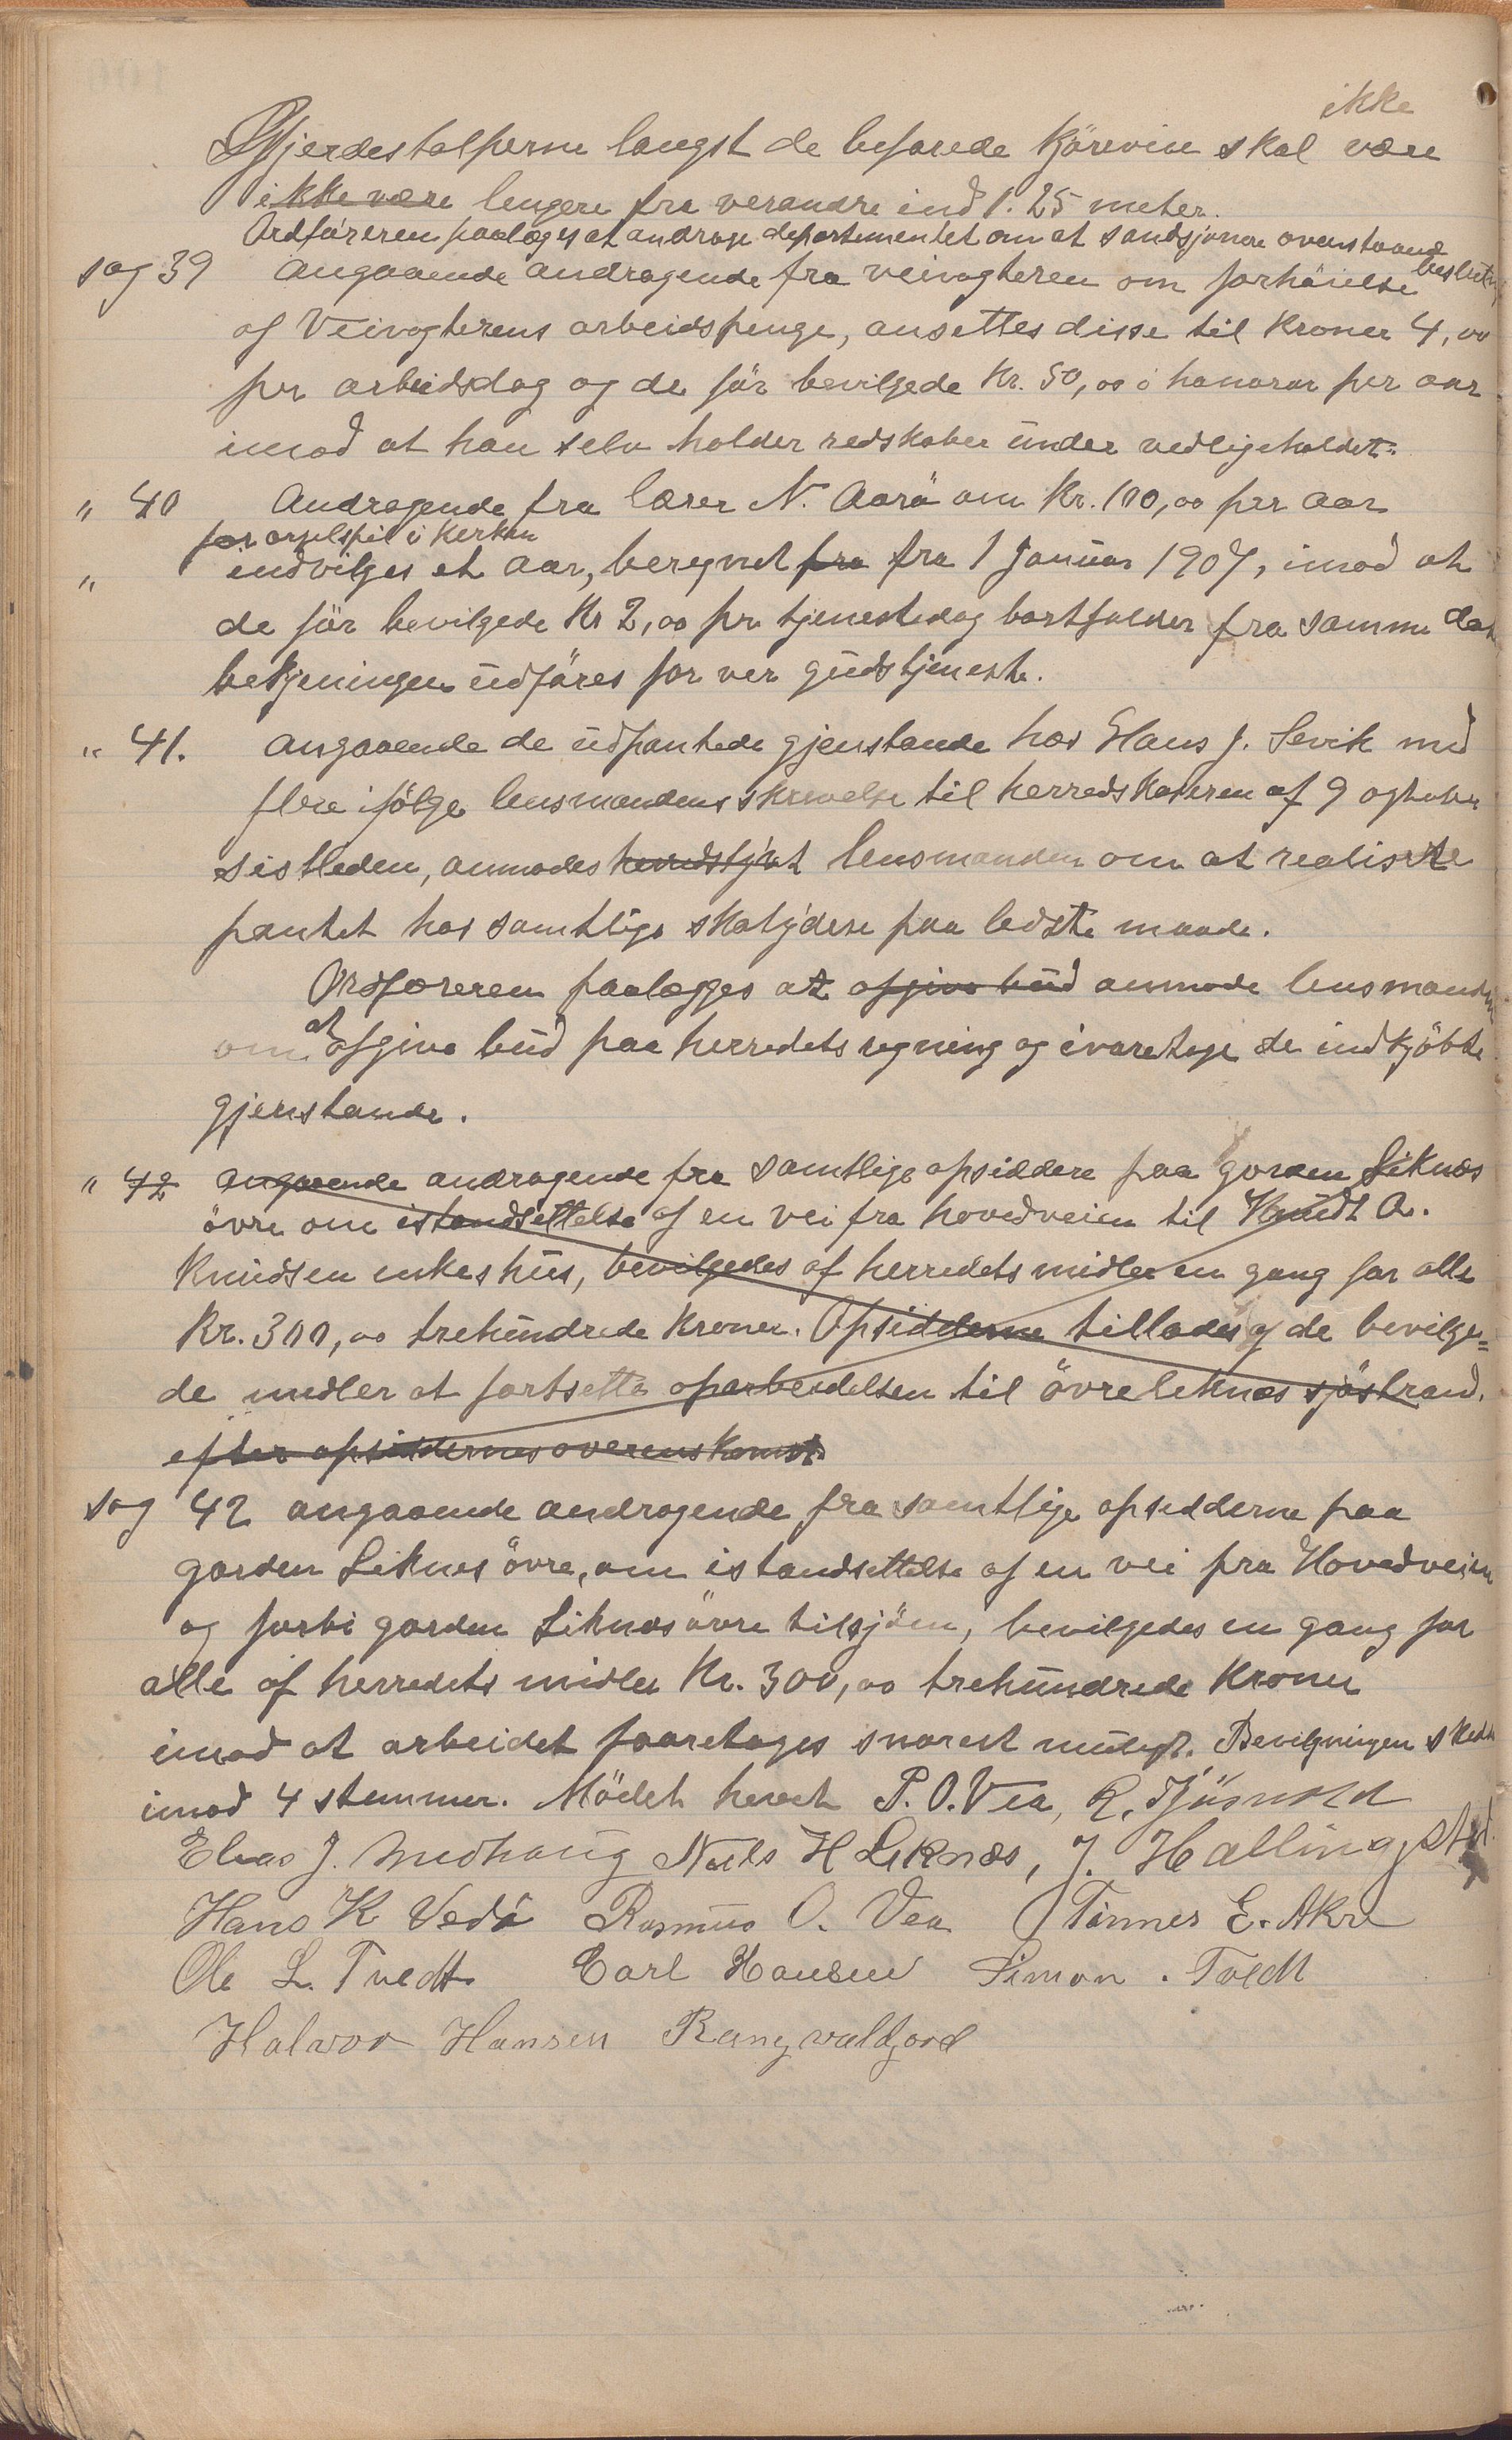 ikke
Gjerdestolperne langst de befarede kjöreveie skal være
ikke være lengere fra verandre ind 1.25 meter.
Ordföreren paalæges at andrage departementet om at sandsjonere ovenstaaende
beslutn
sag 39 Angaaende andragende fra veivogteren om forhöielse
af Veivogterens arbeidspenge, ansettes disse til Kroner 4,00
per arbeidsdag og de för bevilgede Kr. 50,00 i honorar per aar
imod at han selv holder redskaber under vedligeholdet.
" 40 Andragende fra lærer N. Aarö om Kr. 100,00 per aar
for orgelspil i Kerken
" indvilges et aar, beregnet fra fra 1 Januar 1907, imod at
de för bevilgede Kr 2,00 pr tjenestedag bortfalder fra samme dat
betjeningen udföres for ver gudstjeneste.
" 41. Angaaende de udpantede gjenstande hos Hans J. Sevik med
flere ifölge lensmandens skrivelse til herredskasseren af 9 oghober
sistleden, anmodes herredstyret lensmanden om at realisere
pantet hos samtlige skatydere paa bedste maade.
Ordföreren paalægges at afgive bud anmode lensmanden
om at afgive bud paa herredets regning og ivaretage de indkjöbte
gjenstande.
" 42 angaaende andragende fra samtlige opsiddere paa gorden Liknæs
övre om istandsettelse af en vei fra hovedveien til Knudt A.
Knudsen enkes hus, bevilgedes af herredets midler en gang for alle
Kr. 300,00 trehundrede Kroner. Opsidderne tillades af de bevilge=
de midler at fortsette oparbeidelsen til övre liknæs sjöstrand.
efter opsiddernes overenskomst.
sag 42 angaaende andragende fra samtlige opsidderne paa
gorden Liknes övre, om istandsettelse af en vei fra Hovedveien
og forbi gorden Liknæs övre til sjöen, bevilgedes en gang for
alle af herredets midler Kr. 300,00 trehundrede Kroner
imod at arbeidet foaretages snarest muligt. Bevilgningen skede
imod 4 stemmer. Mödet hevet P. O. Vea, R. Tjösvold
Elias J. Medhaug Nils H Liknæs, J. Hallingstad.
Hans K Vedö Rasmus O. Vea Tönnes E. Akre
Ole L. Tvedt Carl Hansen Simon . Tvedt
Halvor Hansen Rangvaldjord